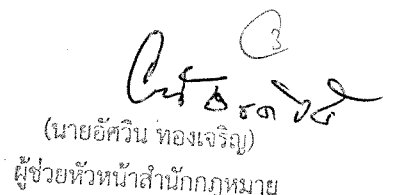 3
(นายอัศวิน ทองเจริญ)
ผู้ช่วยหัวหน้าสำนักกฎหมาย